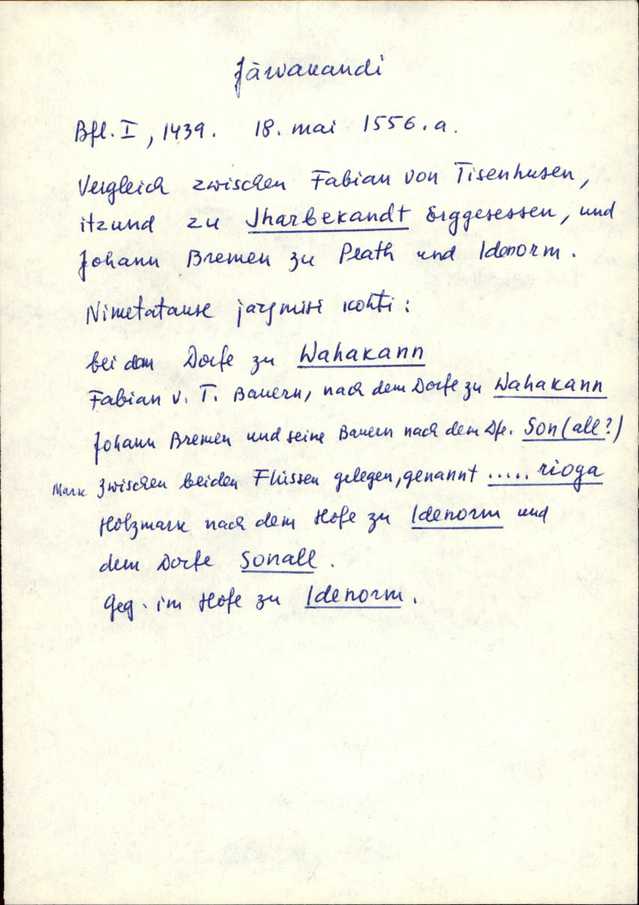 Järvakandi
Bfl. I, 1439. 18. mai 1556.a.
Vergleich zwischen Fabian von Tisenhusen,
itzund zu Jharbekandt erggesessen, und
Johann Bremen zu Peath und Idenorm.
Nimetatakse järgmisi kohti:
bei dem Dorfe zu Wahakann
Fabian v. T. Bauern, nach dem Dorfe zu Wahakann
Johann Bremen und seine Bauern nach dem Dfe. Son(all?)
Mark zwischen beiden Flüssen gelegen, genannt ..... rioga
Holzmark nach dem Hofe zu Idenorm und
dem Dorfe Sonall.
Geg. im Hofe zu Idenorm.